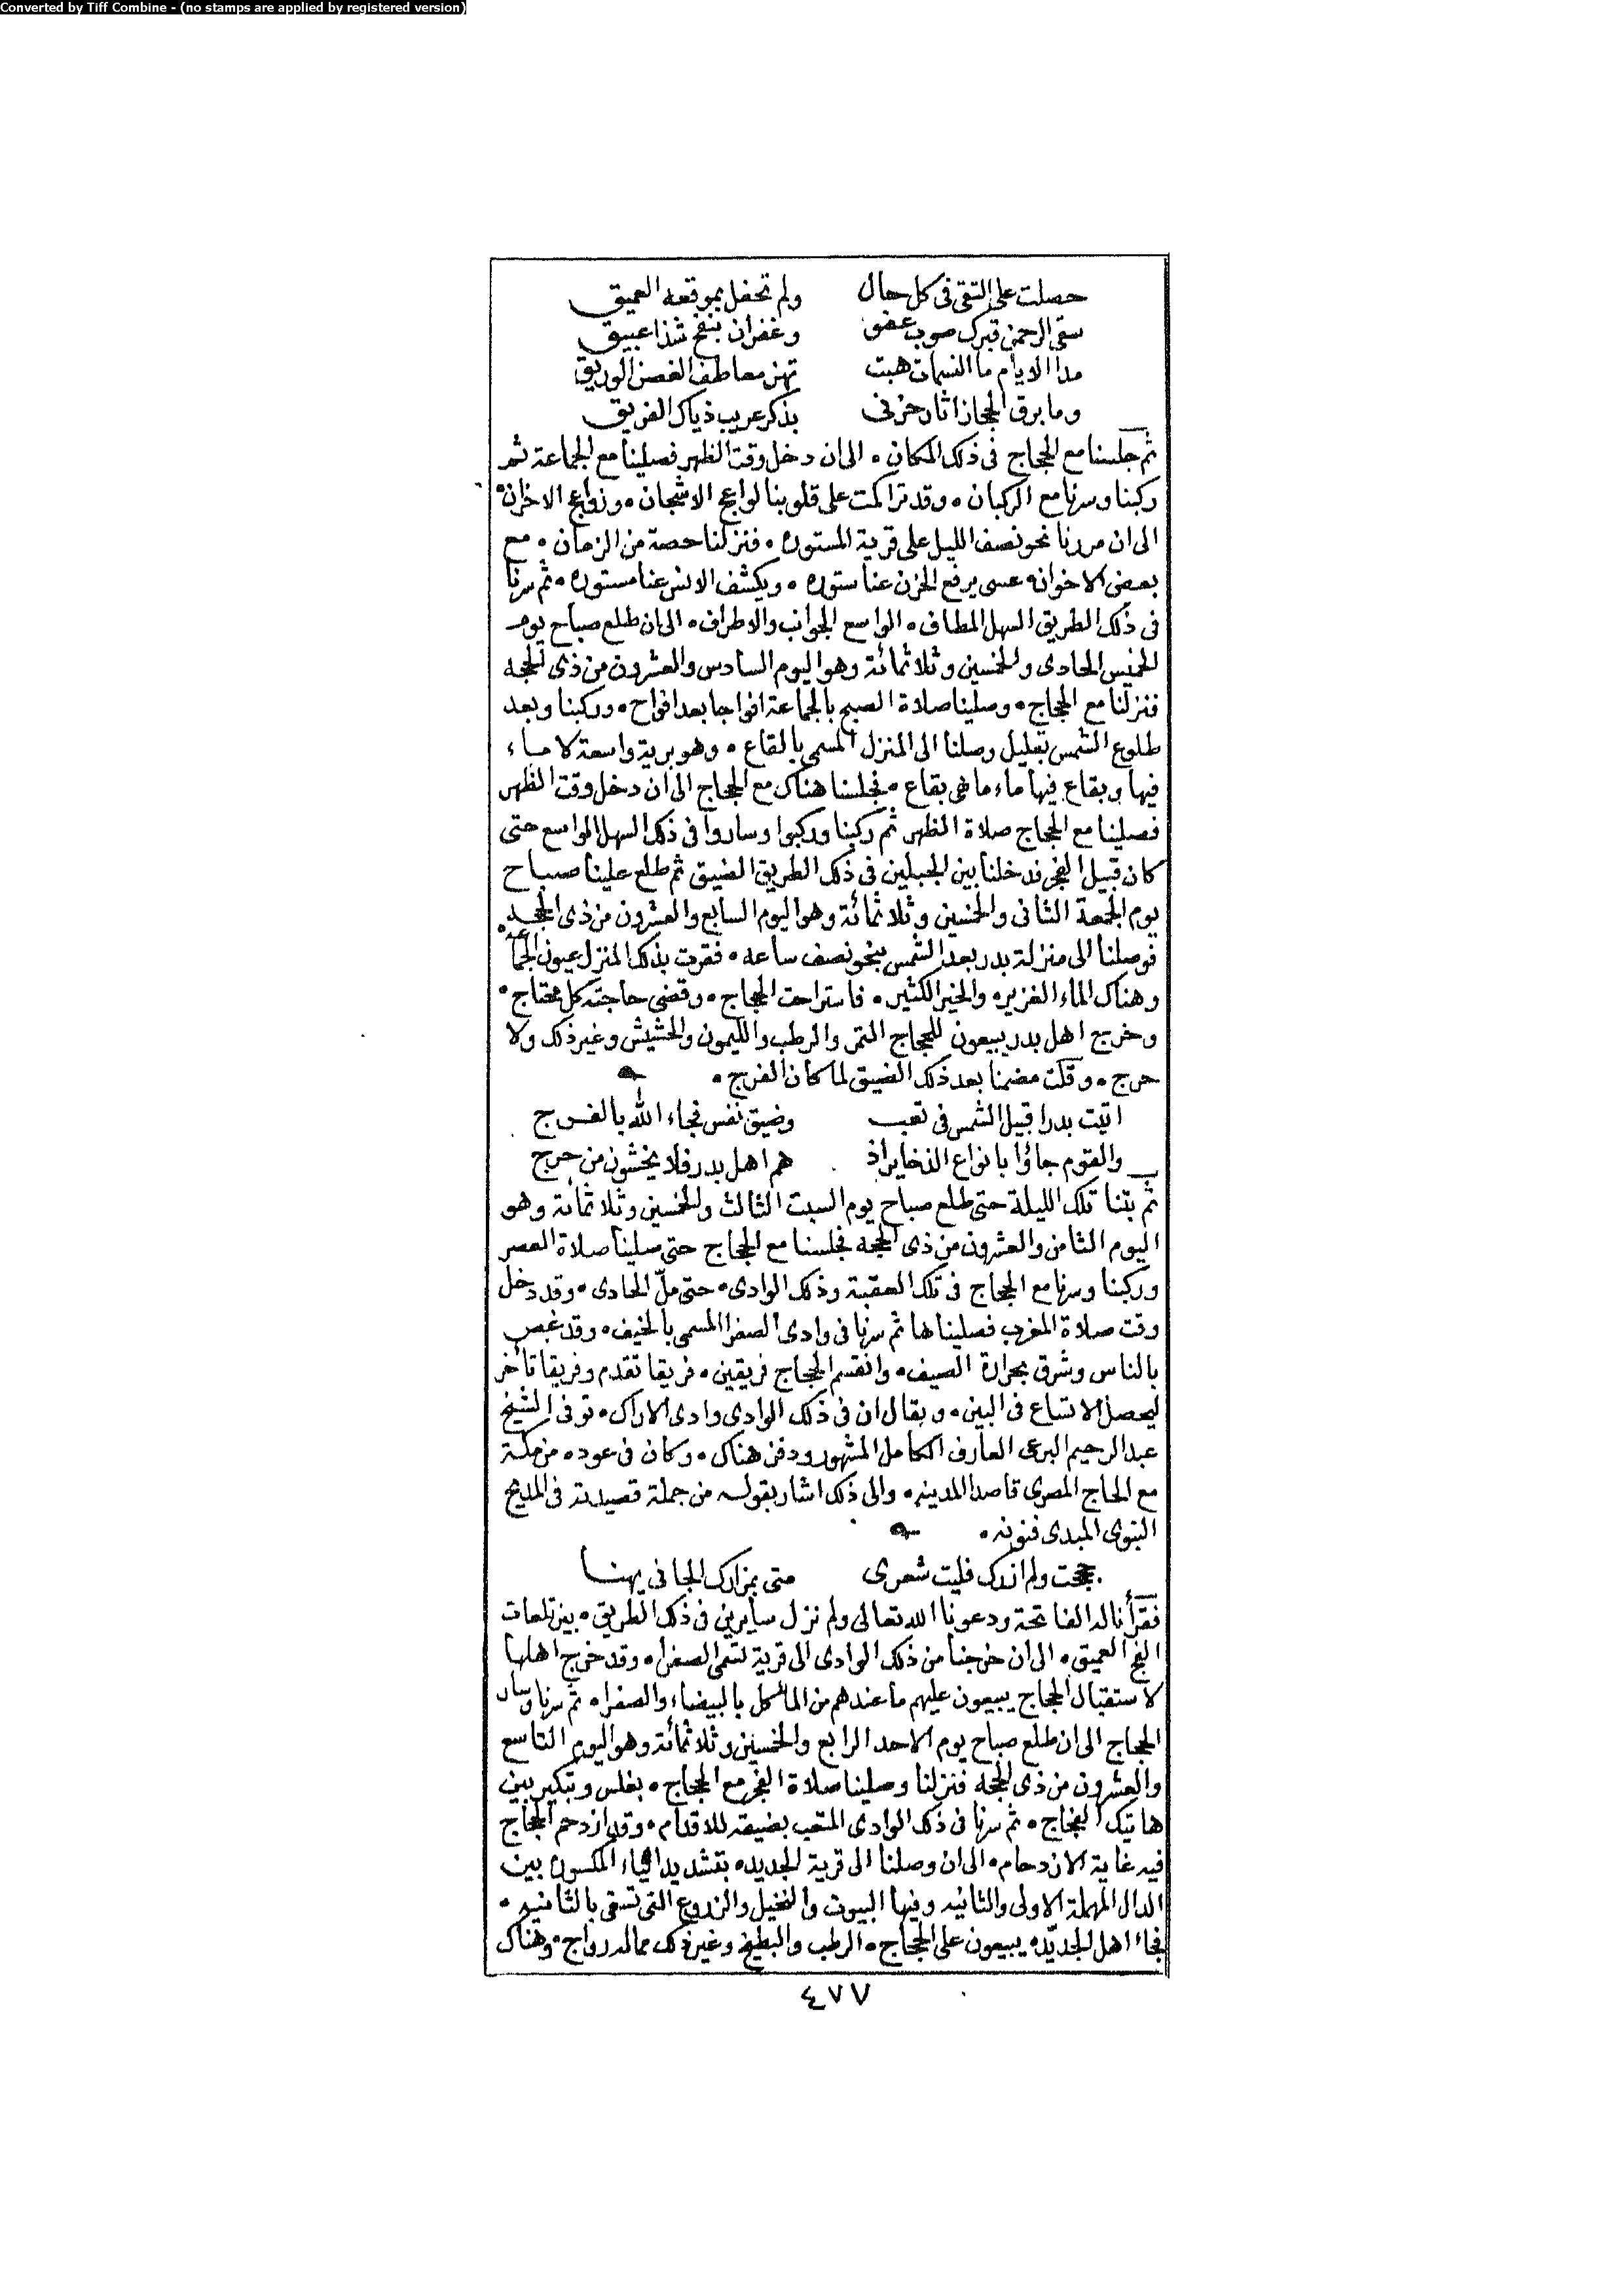 Converted by Tiff Combine - (no stamps are applied by registered version)
حصلت على التقى فى كل حال ولم تحفل بموقعه العميق
سقى الرحمن قبرك صوب عفو وغفران بنفح شذا عبيق
مدا الايام ما النسمات هبت تهز معاطف الغصن الوريق
وما برق الحجاز اثار حزنى بذكر عريب ذياك الفريق
ثم جلسنا مع الحجاج فى ذلك المكان ٠ الى ان دخل وقت الظهر فصلينا مع الجماعة ثم
ركبنا وسرنا مع الركبان ٠ وقد تراكمت على قلوبنا لواعج الاشجان ٠ وزوابع الاحزان ٠
الى ان مررنا نحو نصف الليل على قرية المستوره ٠ فنزلنا حصة من الزمان ٠ مع
بعض الاخوان ٠ عسى يرفع الحزن عنا ستوره ٠ ويكشف الانس عنا مستوره ٠ ثم سرنا
فى ذلك الطريق السهل المطاف ٠ الواسع الجوانب والاطراف ٠ الى ان طلع صباح يوم
الخميس الحادى والخمسين وثلاثمائة وهو اليوم السادس والعشرون من ذى الحجه
فنزلنا مع الحجاج ٠ وصلينا صلاة الصبح بالجماعة افواجا بعد افواج ٠ وركبنا وبعد
طلوع الشمس بقليل وصلنا الى المنزل المسمى بالقاع ٠ وهو برية واسعة لا ماء
فيها وبقاع فيها ماء ما هى بقاع ٠ فجلسنا هناك مع الحجاج الى ان دخل وقت الظهر
فصلينا مع الحجاج صلاة الظهر ثم ركبنا وركبوا وساروا فى ذلك السهل الواسع حتى
كان قبيل الفجر فدخلنا بين الجبلين فى ذلك الطريق الضيق ثم طلع علينا صباح
يوم الجمعة الثانى والخمسين وثلاثمائة وهو اليوم السابع والعشرون من ذى الحجه ٠
فوصلنا الى منزلة بدر بعد الشمس بنحو نصف ساعه ٠ فقرت بذلك المنزل عيون الجماعة
وهناك الماء الغزير ٠ والخير الكثير ٠ فاستراحت الحجاج ٠ وقضى حاجته كل محتاج ٠
وخرج اهل بدر يبيعون للحجاج التمر والرطب والليمون والحشيش وغير ذلك ولا
حرج ٠ وقلت مضمنا بعد ذلك الضيق لما كان الفرج ٠
اتيت بدرا قبيل الشمس فى تعب وضيق نفس فجاء الله بالفرج
والقوم جاؤا بانواع الذخاير اذ هم اهل بدر فلا يخشون من حرج
ثم بتنا تلك الليلة حتى طلع صباح يوم السبت الثالث والخمسين وثلاثمائة وهو
اليوم الثامن والعشرون من ذى الحجه فجلسنا مع الحجاج حتى صلينا صلاة العصر
وركبنا وسرنا مع الحجاج فى تلك العقبة وذلك الوادى ٠ حتى ملّ الحادى ٠ وقد دخل
وقت صلاة المغرب فصليناها ثم سرنا فى وادى الصفرا المسمى بالخيف ٠ وقد غص
بالناس وشرق بحرارة الصيف ٠ وانقسم الحجاج فريقين ٠ فريقا تقدم وفريقا تأخر
ليحصل الاتساع فى البين ٠ ويقال ان فى ذلك الوادى وادى الاراك ٠ توفى الشيخ
عبد الرحيم البرعى العارف الكامل المشهور ودفن هناك ٠ وكان فى عوده من مكة
مع الحاج المصرى قاصد المدينه ٠ والى ذلك اشار بقوله من جملة قصيدته فى المديح
النبوى المبدى فنونه ٠
حججت ولم ازرك فليت شعرى متى بمزارك الجافى يهنا
فقرأنا له الفاتحة ودعونا الله تعالى ولم نزل سايرين فى ذلك الطريق ٠ بين تلعات
الفج العميق ٠ الى ان خرجنا من ذلك الوادى الى قرية تسمى الصفرا ٠ وقد خرج اهلها
لاستقبال الحجاج يبيعون عليهم ما عندهم من المأكل بالبيضاء والصفرا ٠ ثم سرنا وسار
الحجاج الى ان طلع صباح يوم الاحد الرابع والخمسين وثلاثمائة وهو اليوم التاسع
والعشرون من ذى الحجه فنزلنا وصلينا صلاة الفجر مع الحجاج ٠ بغلس وتبكير بين
هاتيك الفجاج ٠ ثم سرنا فى ذلك الوادى المتعب بضيقه للاقدام ٠ وقد ازدحم الحجاج
فيه غاية الازدحام ٠ الى ان وصلنا الى قرية الجديده بتشديد الياء المكسورة بين
الدال المهملة الاولى والثانيه وفيها البيوت والنخيل والزروع التى تسقى بالثانيه ٠
فجاء اهل الجديّده يبيعون على الحجاج ٠ الرطب والبطيخ وغير ذلك مما له رواج ٠ وهناك
٤٧٧